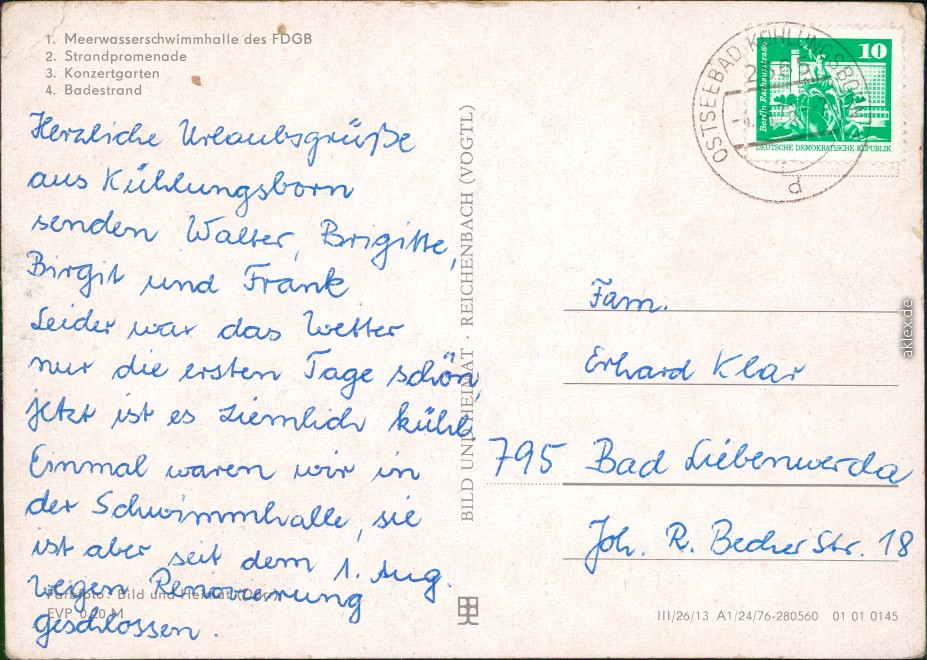 1. Meerwasserschwimmhalle des FDGB
2. Strandpromenade
3. Konzertgarten
4. Badestrand
Herzliche Urlaubsgrüße
aus Kühlungsborn
senden Walter, Brigitte,
Birgit und Frank
Leider war das Wetter
nur die ersten Tage schön,
jetzt ist es ziemlich kühl.
Einmal waren wir in
der Schwimmhalle, sie
ist aber seit dem 1. Aug.
wegen Renovierung
geschlossen.
Farbfoto: Bild und Heimat
EVP 0,20 M
BILD UND HEIMAT · REICHENBACH (VOGTL)
OSTSEEBAD KÜHLUNGSBORN
d
10
Berlin Rathausstraße
DEUTSCHE DEMOKRATISCHE REPUBLIK
Fam.
Erhard Klar
795 Bad Liebenwerda
Joh. R. Becher Str. 18
III/26/13 A1/24/76-280560 01 01 0145
aklex.de